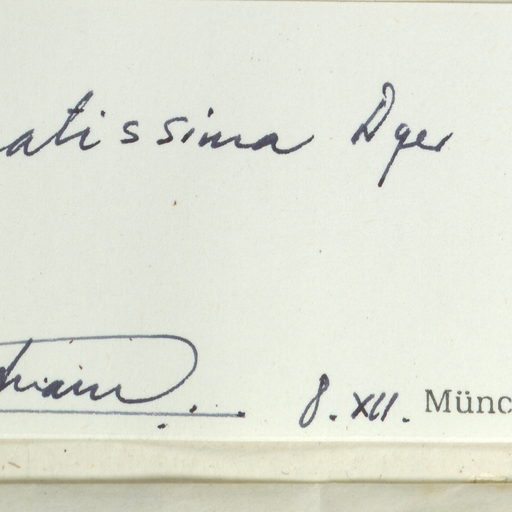 atissima Dyer
8. XII. Münc